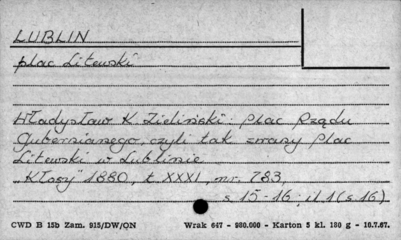 LUBLIN
plac Litewski
Władysław K. Zieliński: Plac Rządu
Gubernianego, czyli tak zwany Plac
Litewski w Lublinie
„Kłosy" 1880, t. XXXI, nr. 783,
s. 15-16; il 1 (s. 16)
CWD B 15b Zam. 915/DW/ON Wrak 647 - 980.000 - Karton 5 kl. 180 g - 10.7.67.